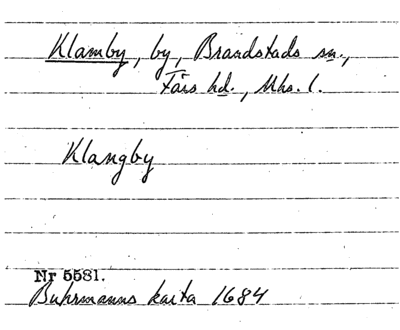 Klamby, by, Brandstads sn.,
Färs hd., Mhs. l.
Klangby
Nr 5581.
Buhrmanns karta 1684